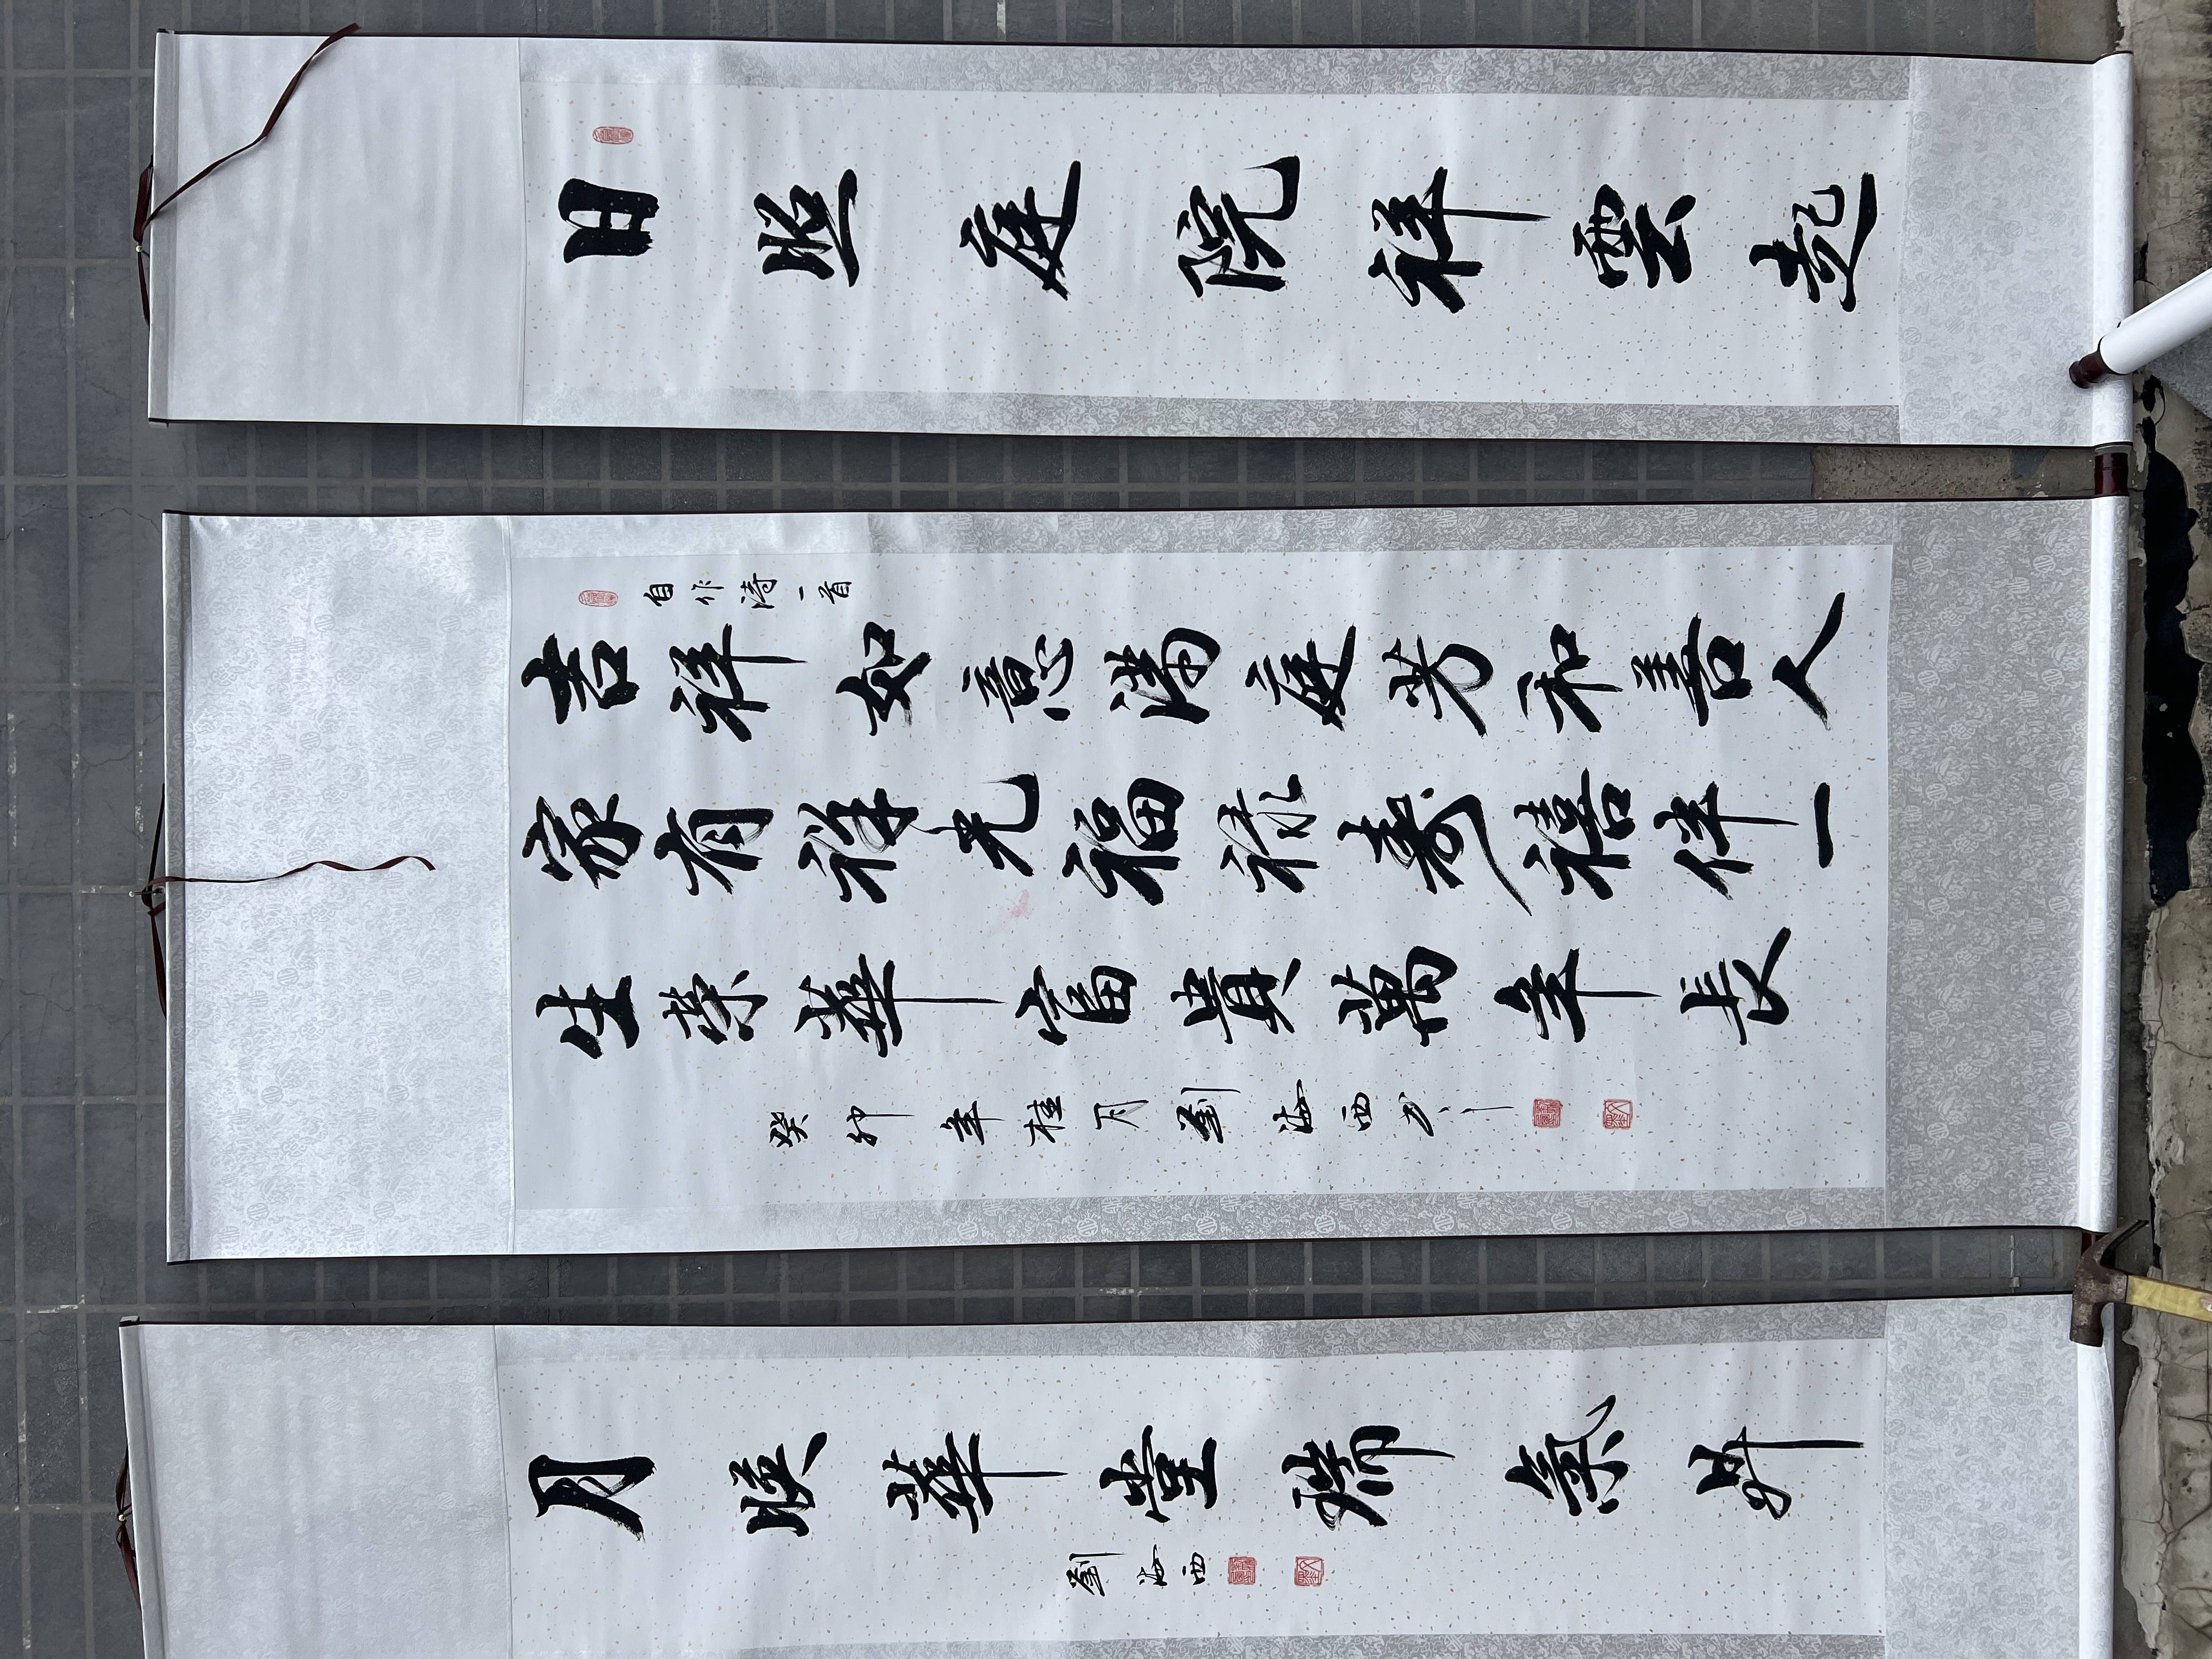 日照庭院祥雲起
自作诗一首
吉祥如意满庭芳和善人
家有祥光福禄寿禧伴一
生荣華富貴萬年長
癸卯年桂月劉海西书
月映華堂瑞氣昇
劉海西